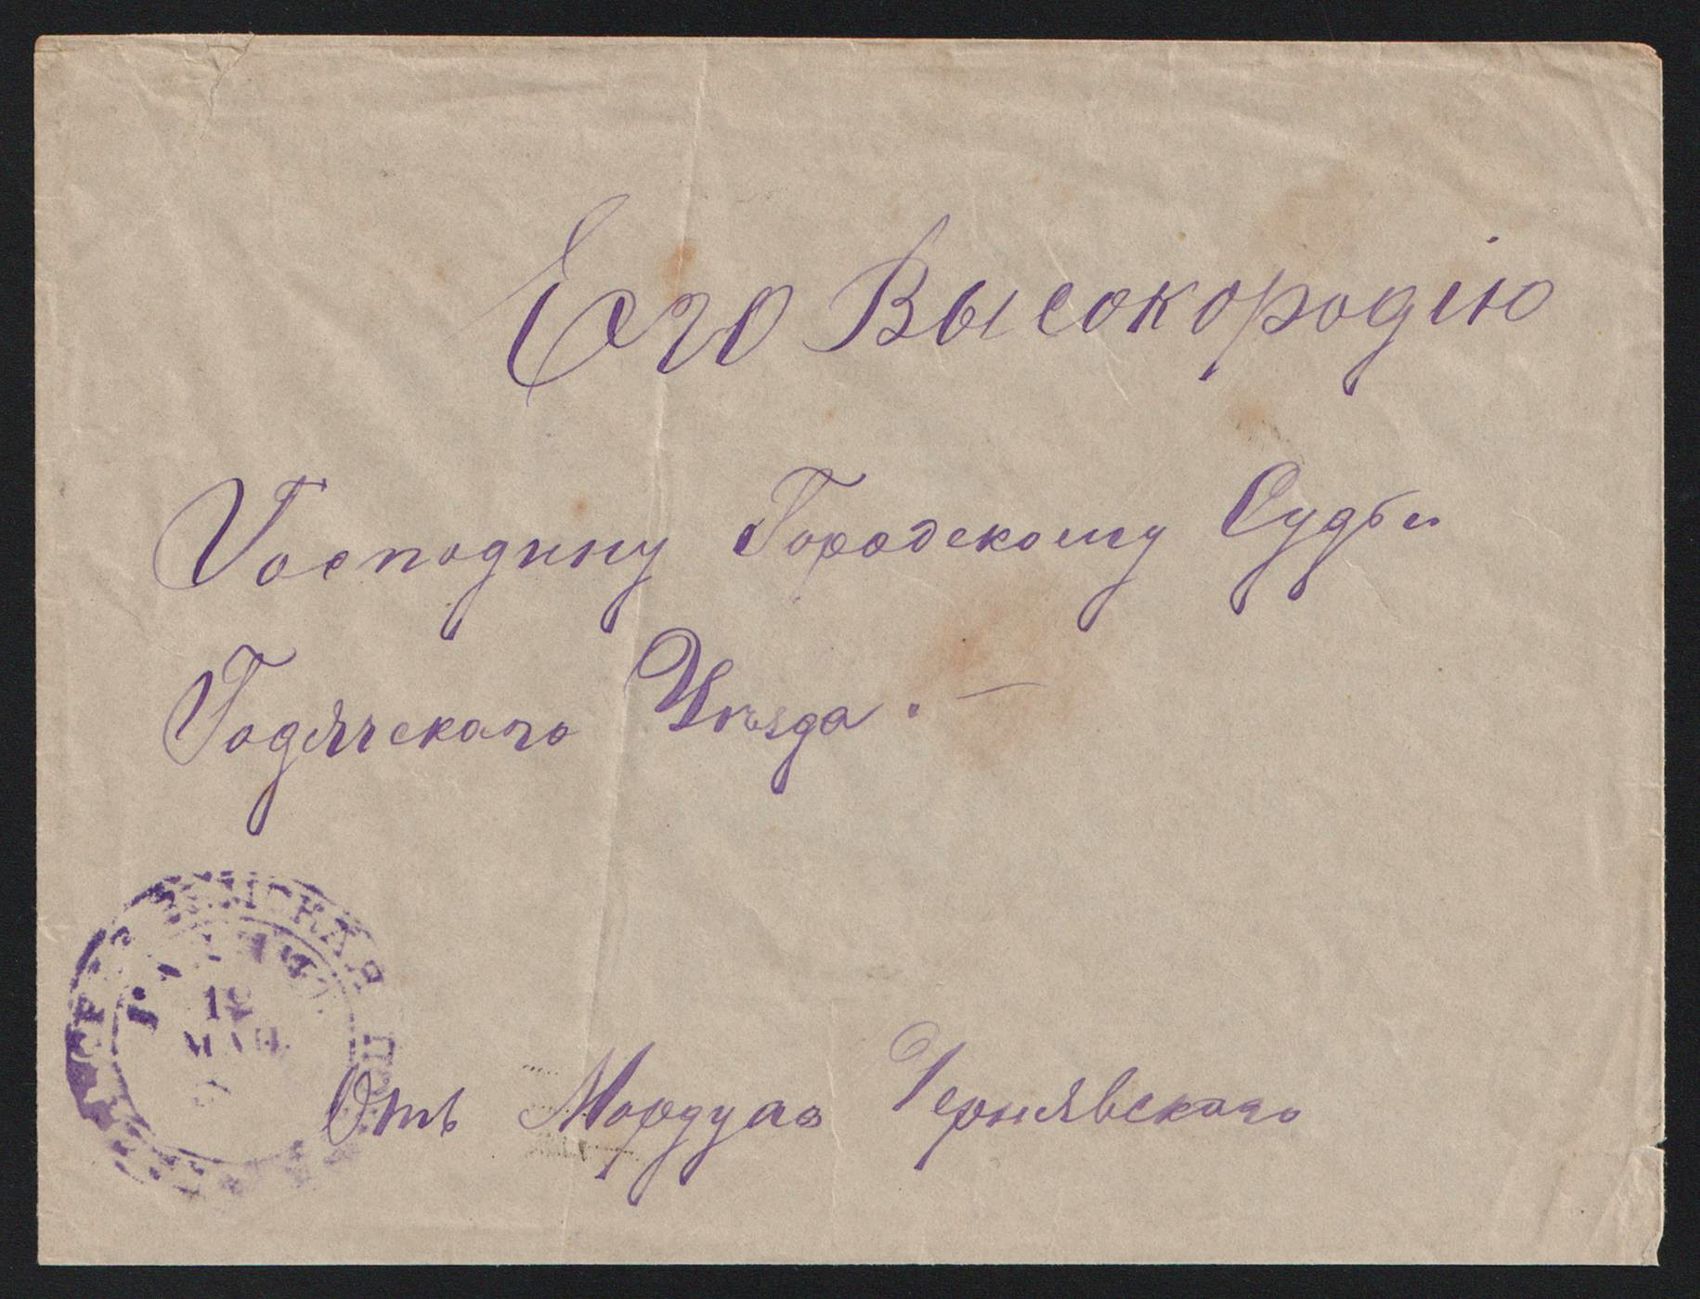 Его Высокородію
Господину Городскому Судьи
Гадячскаго Уѣзда. —
12
МАЯ
Отъ Мордуха Чернявскаго